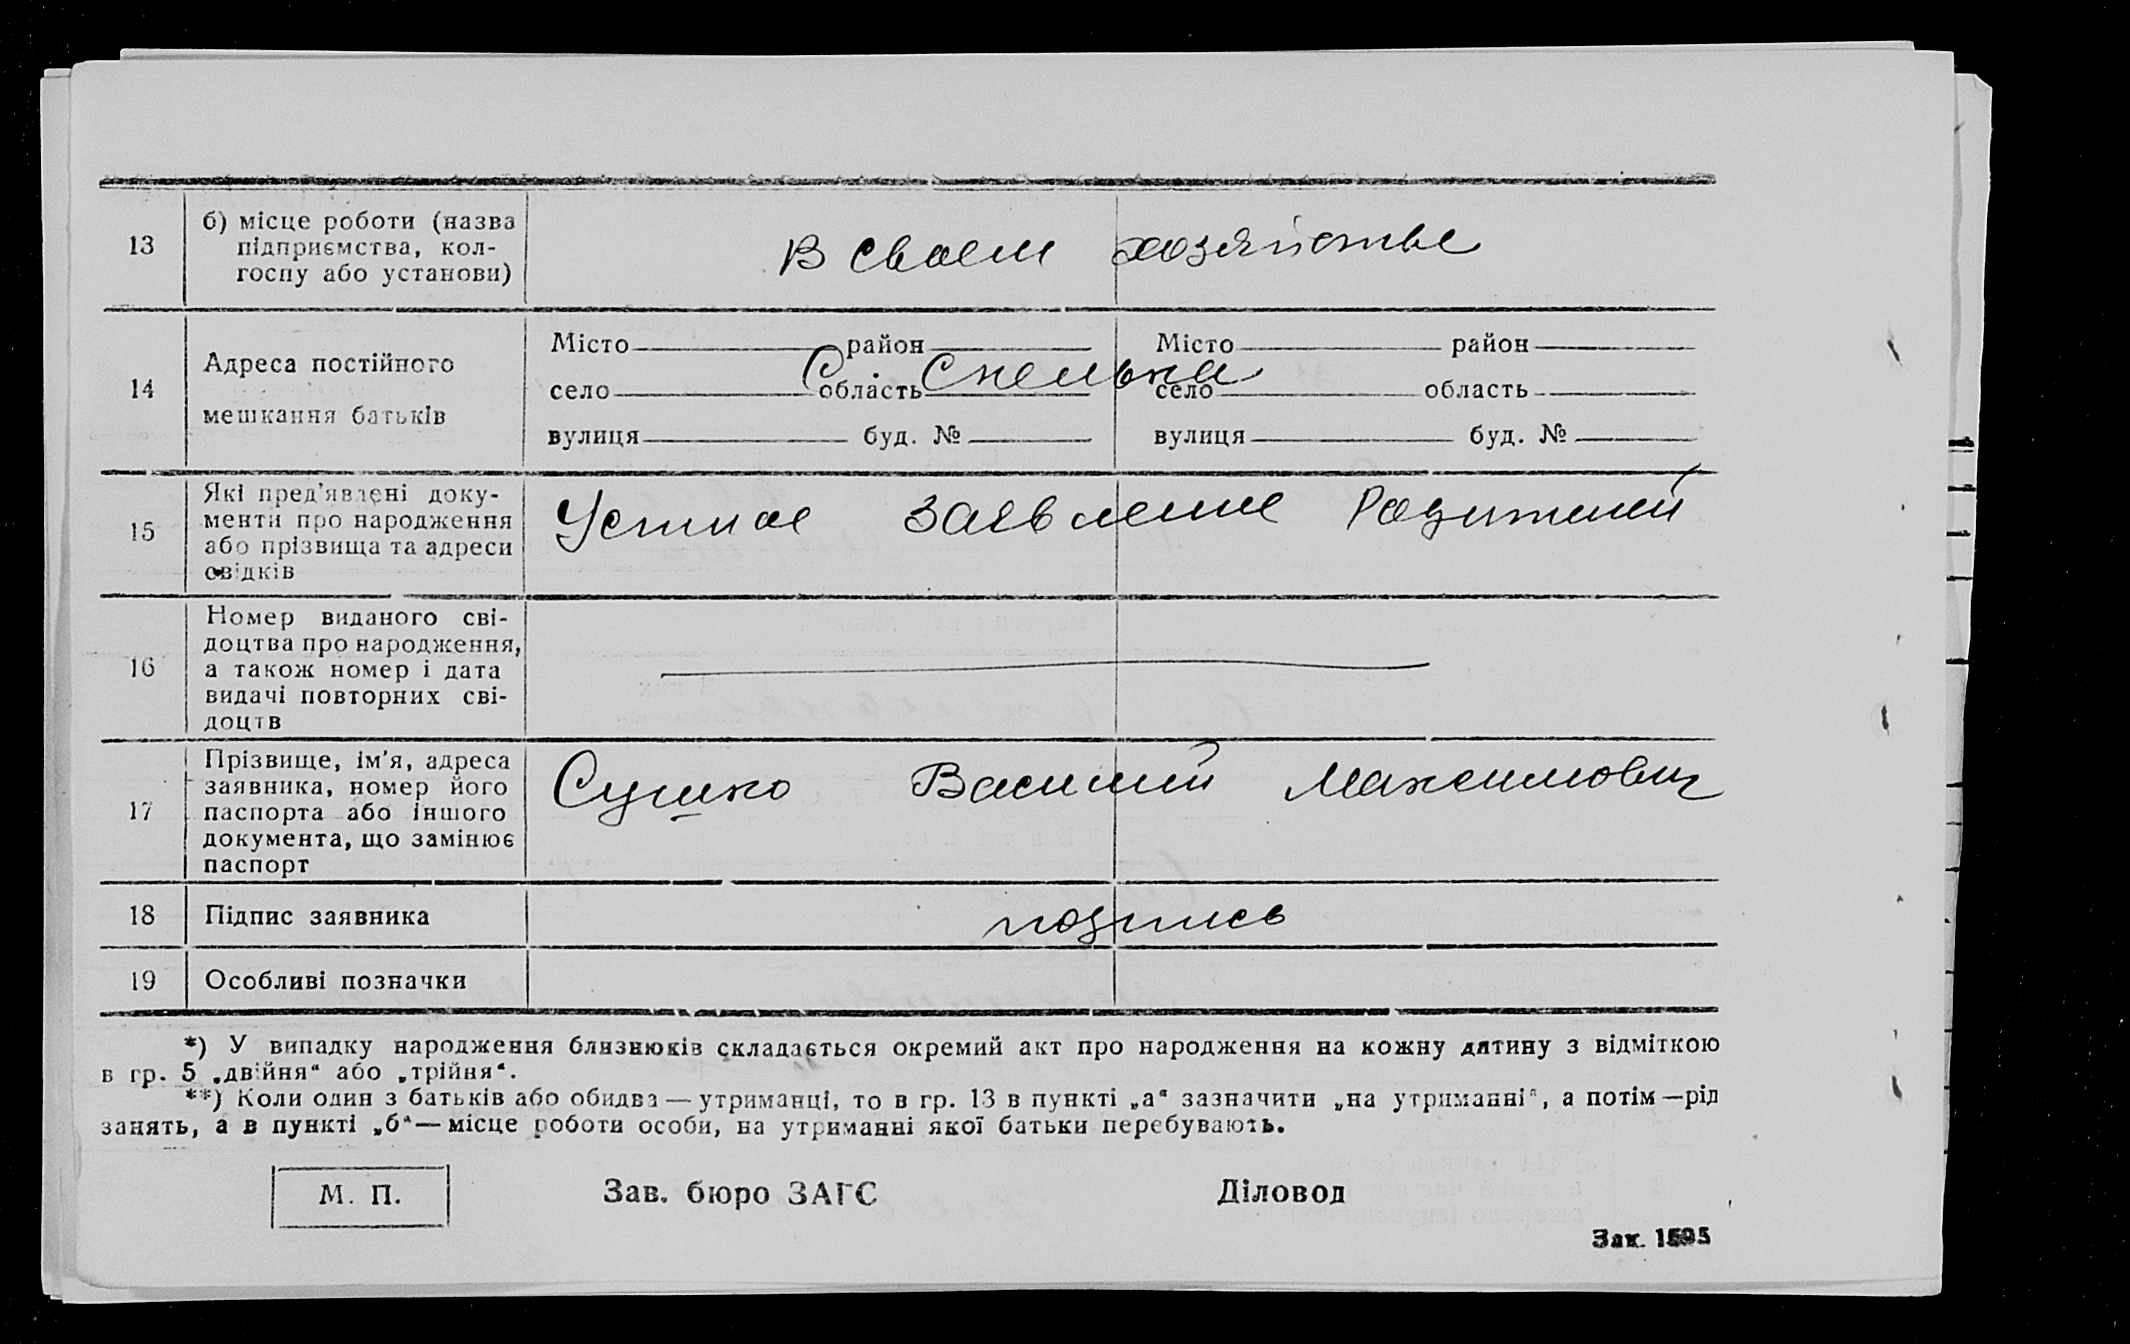 13
б) місце роботи (назва
підприємства, кол-
госпу або установи)
В своем хозяйстве
14
Адреса постійного
мешкання батьків
Місто район
село область
вулиця буд. №
Місто район
село область
вулиця буд. №
С. Смелька
15
Які пред'явлені доку-
менти про народження
або прізвища та адреси
свідків
Устное заявление Родителей
16
Номер виданого сві-
доцтва про народження,
а також номер і дата
видачі повторних сві-
доцтв
17
Прізвище, ім'я, адреса
заявника, номер його
паспорта або іншого
документа, що замінює
паспорт
Сушко Василий Максимович
18
Підпис заявника
подпись
19
Особливі позначки
*) У випадку народження близнюків складається окремий акт про народження на кожну дитину з відміткою
в гр. 5 „двійня“ або „трійня“.
**) Коли один з батьків або обидва — утриманці, то в гр. 13 в пункті „а“ зазначити „на утриманні“, а потім — рід
занять, а в пункті „б“ — місце роботи особи, на утриманні якої батьки перебувають.
М. П.
Зав. бюро ЗАГС
Діловод
Зак. 1595